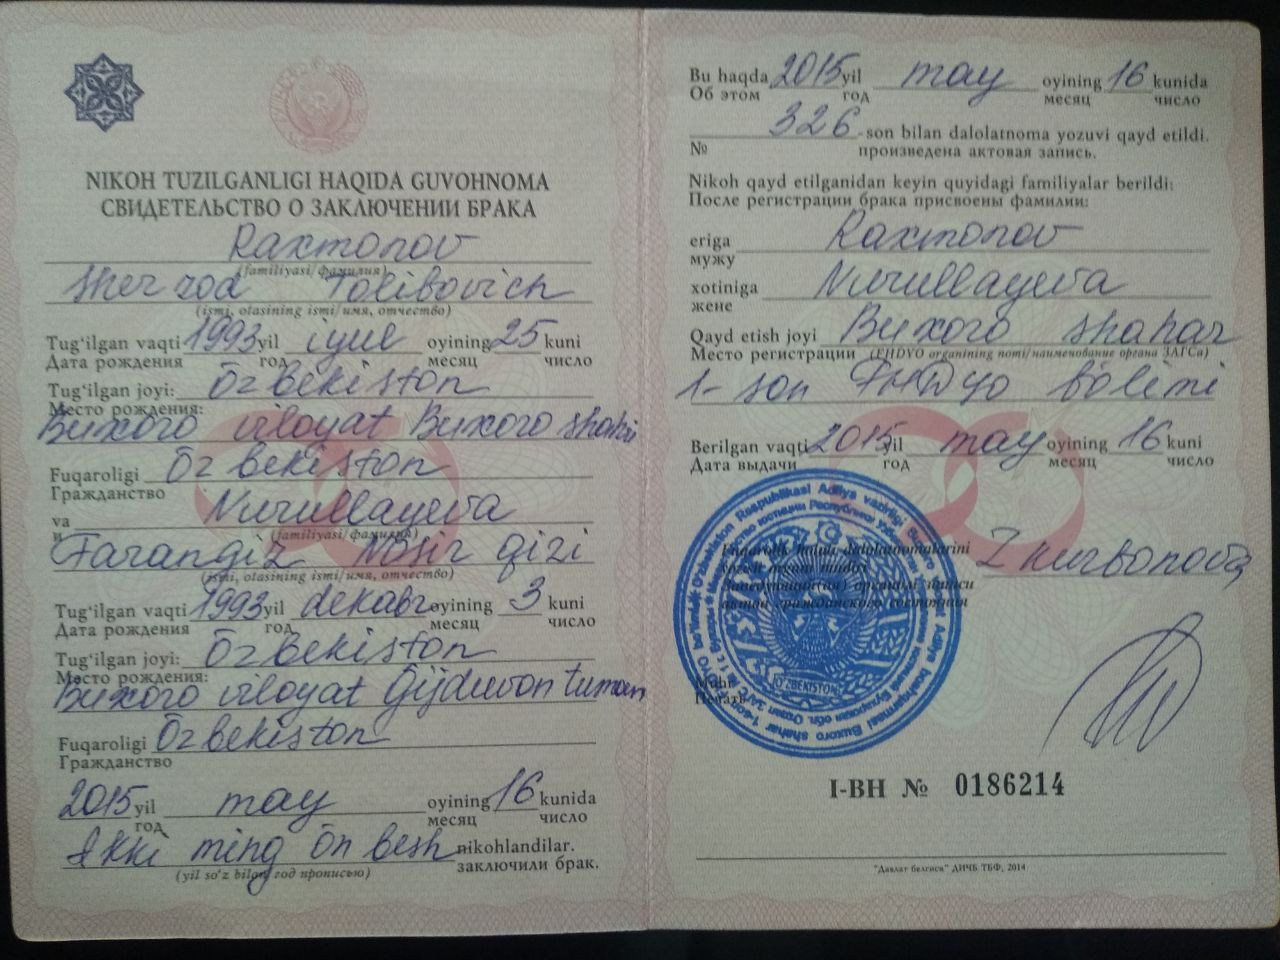 NIKOH TUZILGANLIGI HAQIDA GUVOHNOMA
СВИДЕТЕЛЬСТВО О ЗАКЛЮЧЕНИИ БРАКА
Raxmonov
(familiyasi/фамилия)
Sherzod Tolibovich
(ismi, otasining ismi/имя, отчество)
Tug‘ilgan vaqti 1993 yil iyul oyining 25 kuni
Дата рождения год месяц число
Tug‘ilgan joyi: Ōzbekiston
Место рождения:
Buxoro viloyat Buxoro shahri
Fuqaroligi Ōzbekiston
Гражданство
va Nurullayeva
и (familiyasi/фамилия)
Farangiz Nosir qizi
(ismi, otasining ismi/имя, отчество)
Tug‘ilgan vaqti 1993 yil dekabr oyining 3 kuni
Дата рождения год месяц число
Tug‘ilgan joyi: Ōzbekiston
Место рождения:
Buxoro viloyat Gijduvon tuman
Fuqaroligi Ōzbekiston
Гражданство
2015 yil may oyining 16 kunida
год месяц число
Ikki ming ōn besh nikohlandilar.
(yil so‘z bilan/год прописью) заключили брак.
Bu haqda 2015 yil may oyining 16 kunida
Об этом год месяц число
326 -son bilan dalolatnoma yozuvi qayd etildi.
№ произведена актовая запись.
Nikoh qayd etilganidan keyin quyidagi familiyalar berildi:
После регистрации брака присвоены фамилии:
eriga Raxmonov
мужу
xotiniga Nurullayeva
жене
Qayd etish joyi Buxoro shahar
Место регистрации (FHDYO organining nomi/наименование органа ЗАГСа)
1-son FHDYo bōlimi
Berilgan vaqti 2015 yil may oyining 16 kuni
Дата выдачи год месяц число
Fuqarolik holati dalolatnomalarini
Заведующий(ая) органом записи
актов гражданского состояния
Z Kurbonova
O‘ZBEKISTON
Muhr
Печать
I-BH № 0186214
"Давлат белгиси" ДИЧБ ТБФ, 2014